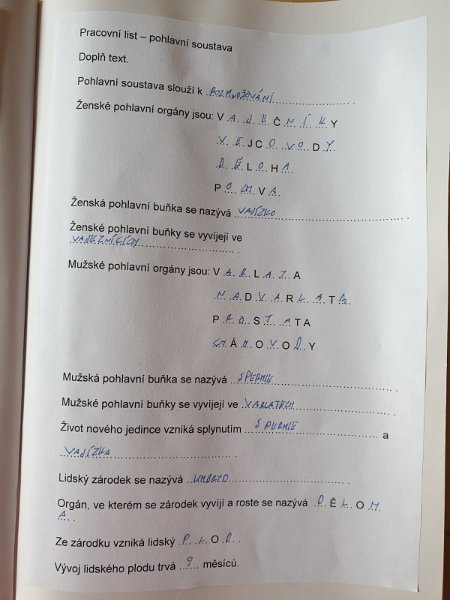 Pracovní list – pohlavní soustava
Doplň text.
Pohlavní soustava slouží k ROZMNOŽOVÁNÍ
Ženské pohlavní orgány jsou: VAJEČNÍKY
VEJCOVODY
DĚLOHA
POCHVA
Ženská pohlavní buňka se nazývá VAJÍČKO
Ženské pohlavní buňky se vyvíjejí ve
Mužské pohlavní orgány jsou: VARLATA
NADVARLATA
PROSTATA
CHÁMOVODY
Mužská pohlavní buňka se nazývá SPERMIE
Mužské pohlavní buňky se vyvíjejí ve VARLATECH
Život nového jedince vzniká splynutím SPERMIE a
VAJÍČKA
Lidský zárodek se nazývá EMBRYO
Orgán, ve kterém se zárodek vyvíjí a roste se nazývá DĚLOH
A.
Ze zárodku vzniká lidský PLOD.
Vývoj lidského plodu trvá 9 měsíců.